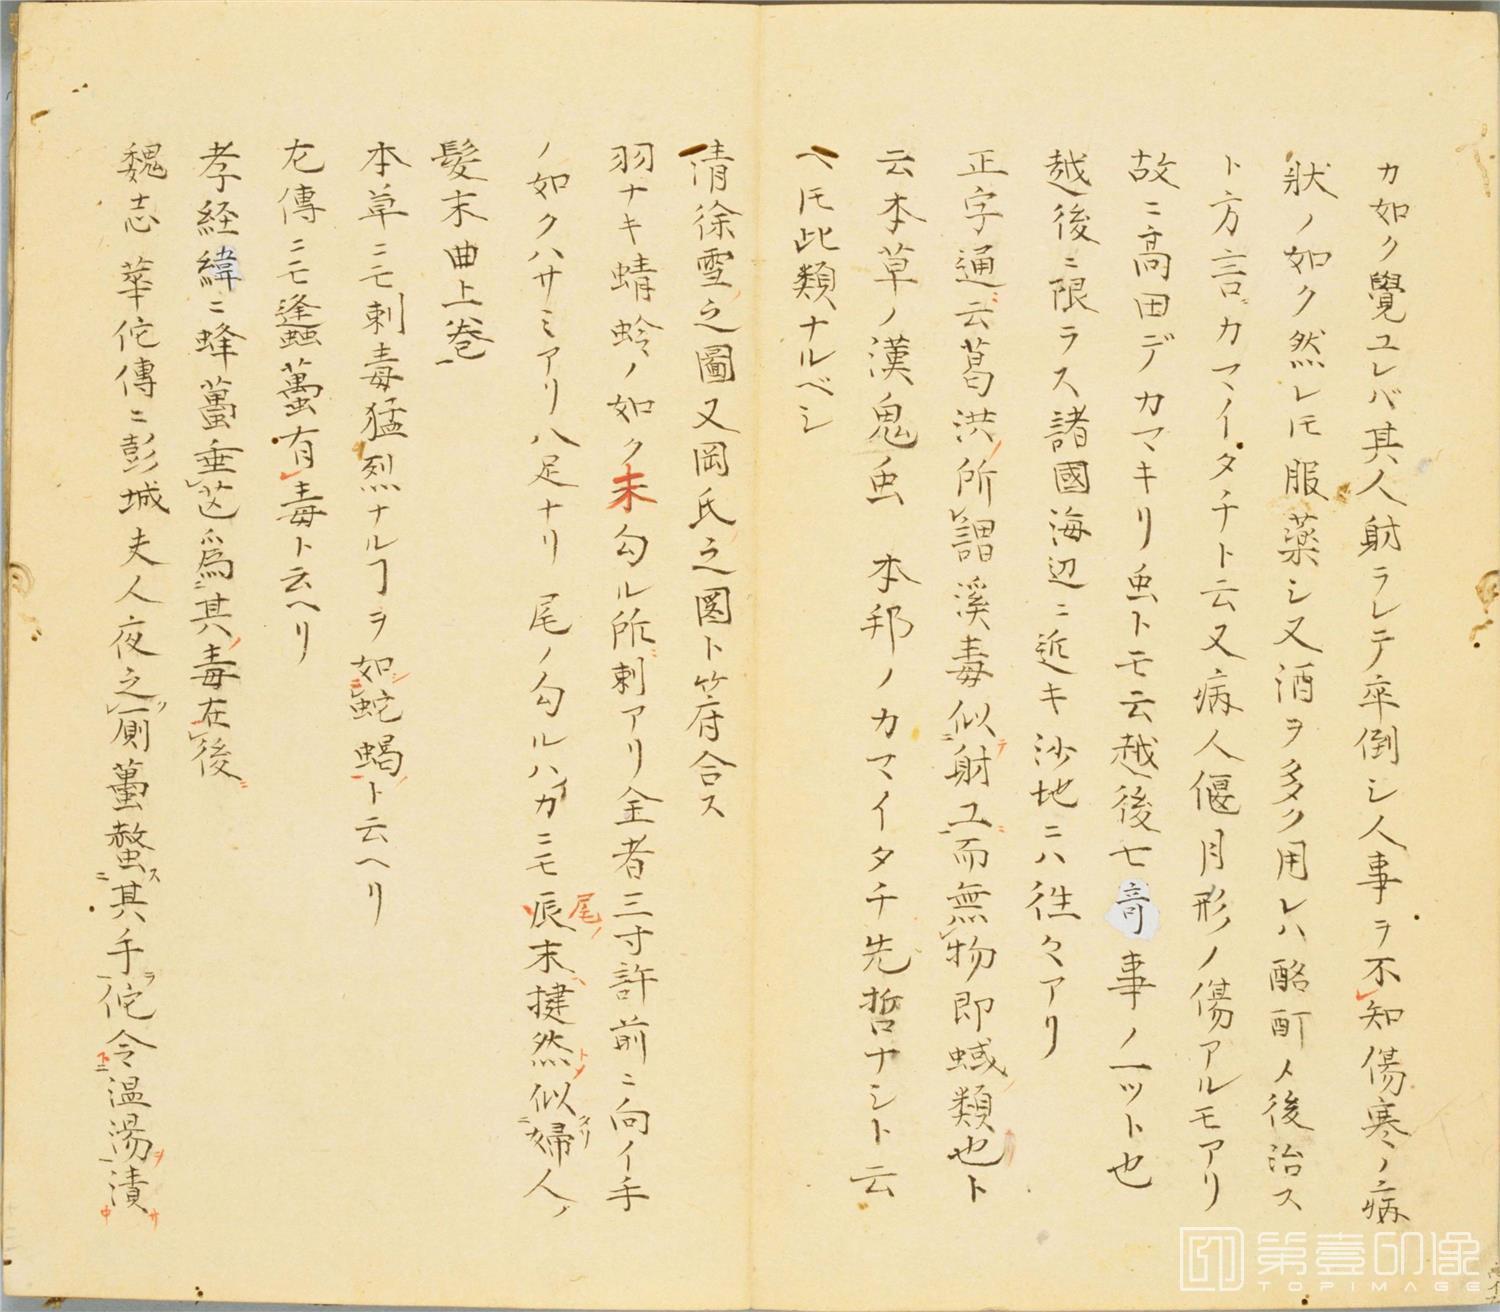 カ如ク覺ユレバ其人射ラレテ卒倒シ人事ヲ不知傷寒ノ病
狀ノ如ク然レ𪜈服薬シ又酒ヲ多ク用レハ酩酊メ後治ス
ト方言カマイタチト云又病人偃月形ノ傷アルモアリ
故ニ高田デカマキリ虫トモ云越後七奇事ノ一ツト也
越後ニ限ラス諸國海辺ニ近キ沙地ニハ徃々アリ
正字通云葛洪所謂溪毒似射工而無物即蜮類也ト
云本草ノ漢鬼虫 本邦ノカマイタチ先哲ナシト云
ヘ𪜈此類ナルベシ
清徐雪之圖又岡氏之図ト符合ス
羽ナキ蜻蛉ノ如ク末勾ル所刺アリ全者三寸許前ニ向イ手
ノ如クハサミアリ八足ナリ尾ノ勾ルハイカニモ尾ノ末揵然似婦人ノ
髮末曲上卷
本草ニモ刺毒猛烈ナルヿヲ如蛇蝎ト云ヘリ
左傳ニモ蠭蠆有毒ト云ヘリ
孝経緯ニ蜂蠆垂芒爲其毒在後
魏志華佗傳ニ彭城夫人夜之厠蠆螫其手佗令温湯漬
第壹印像
TOPIMAGE